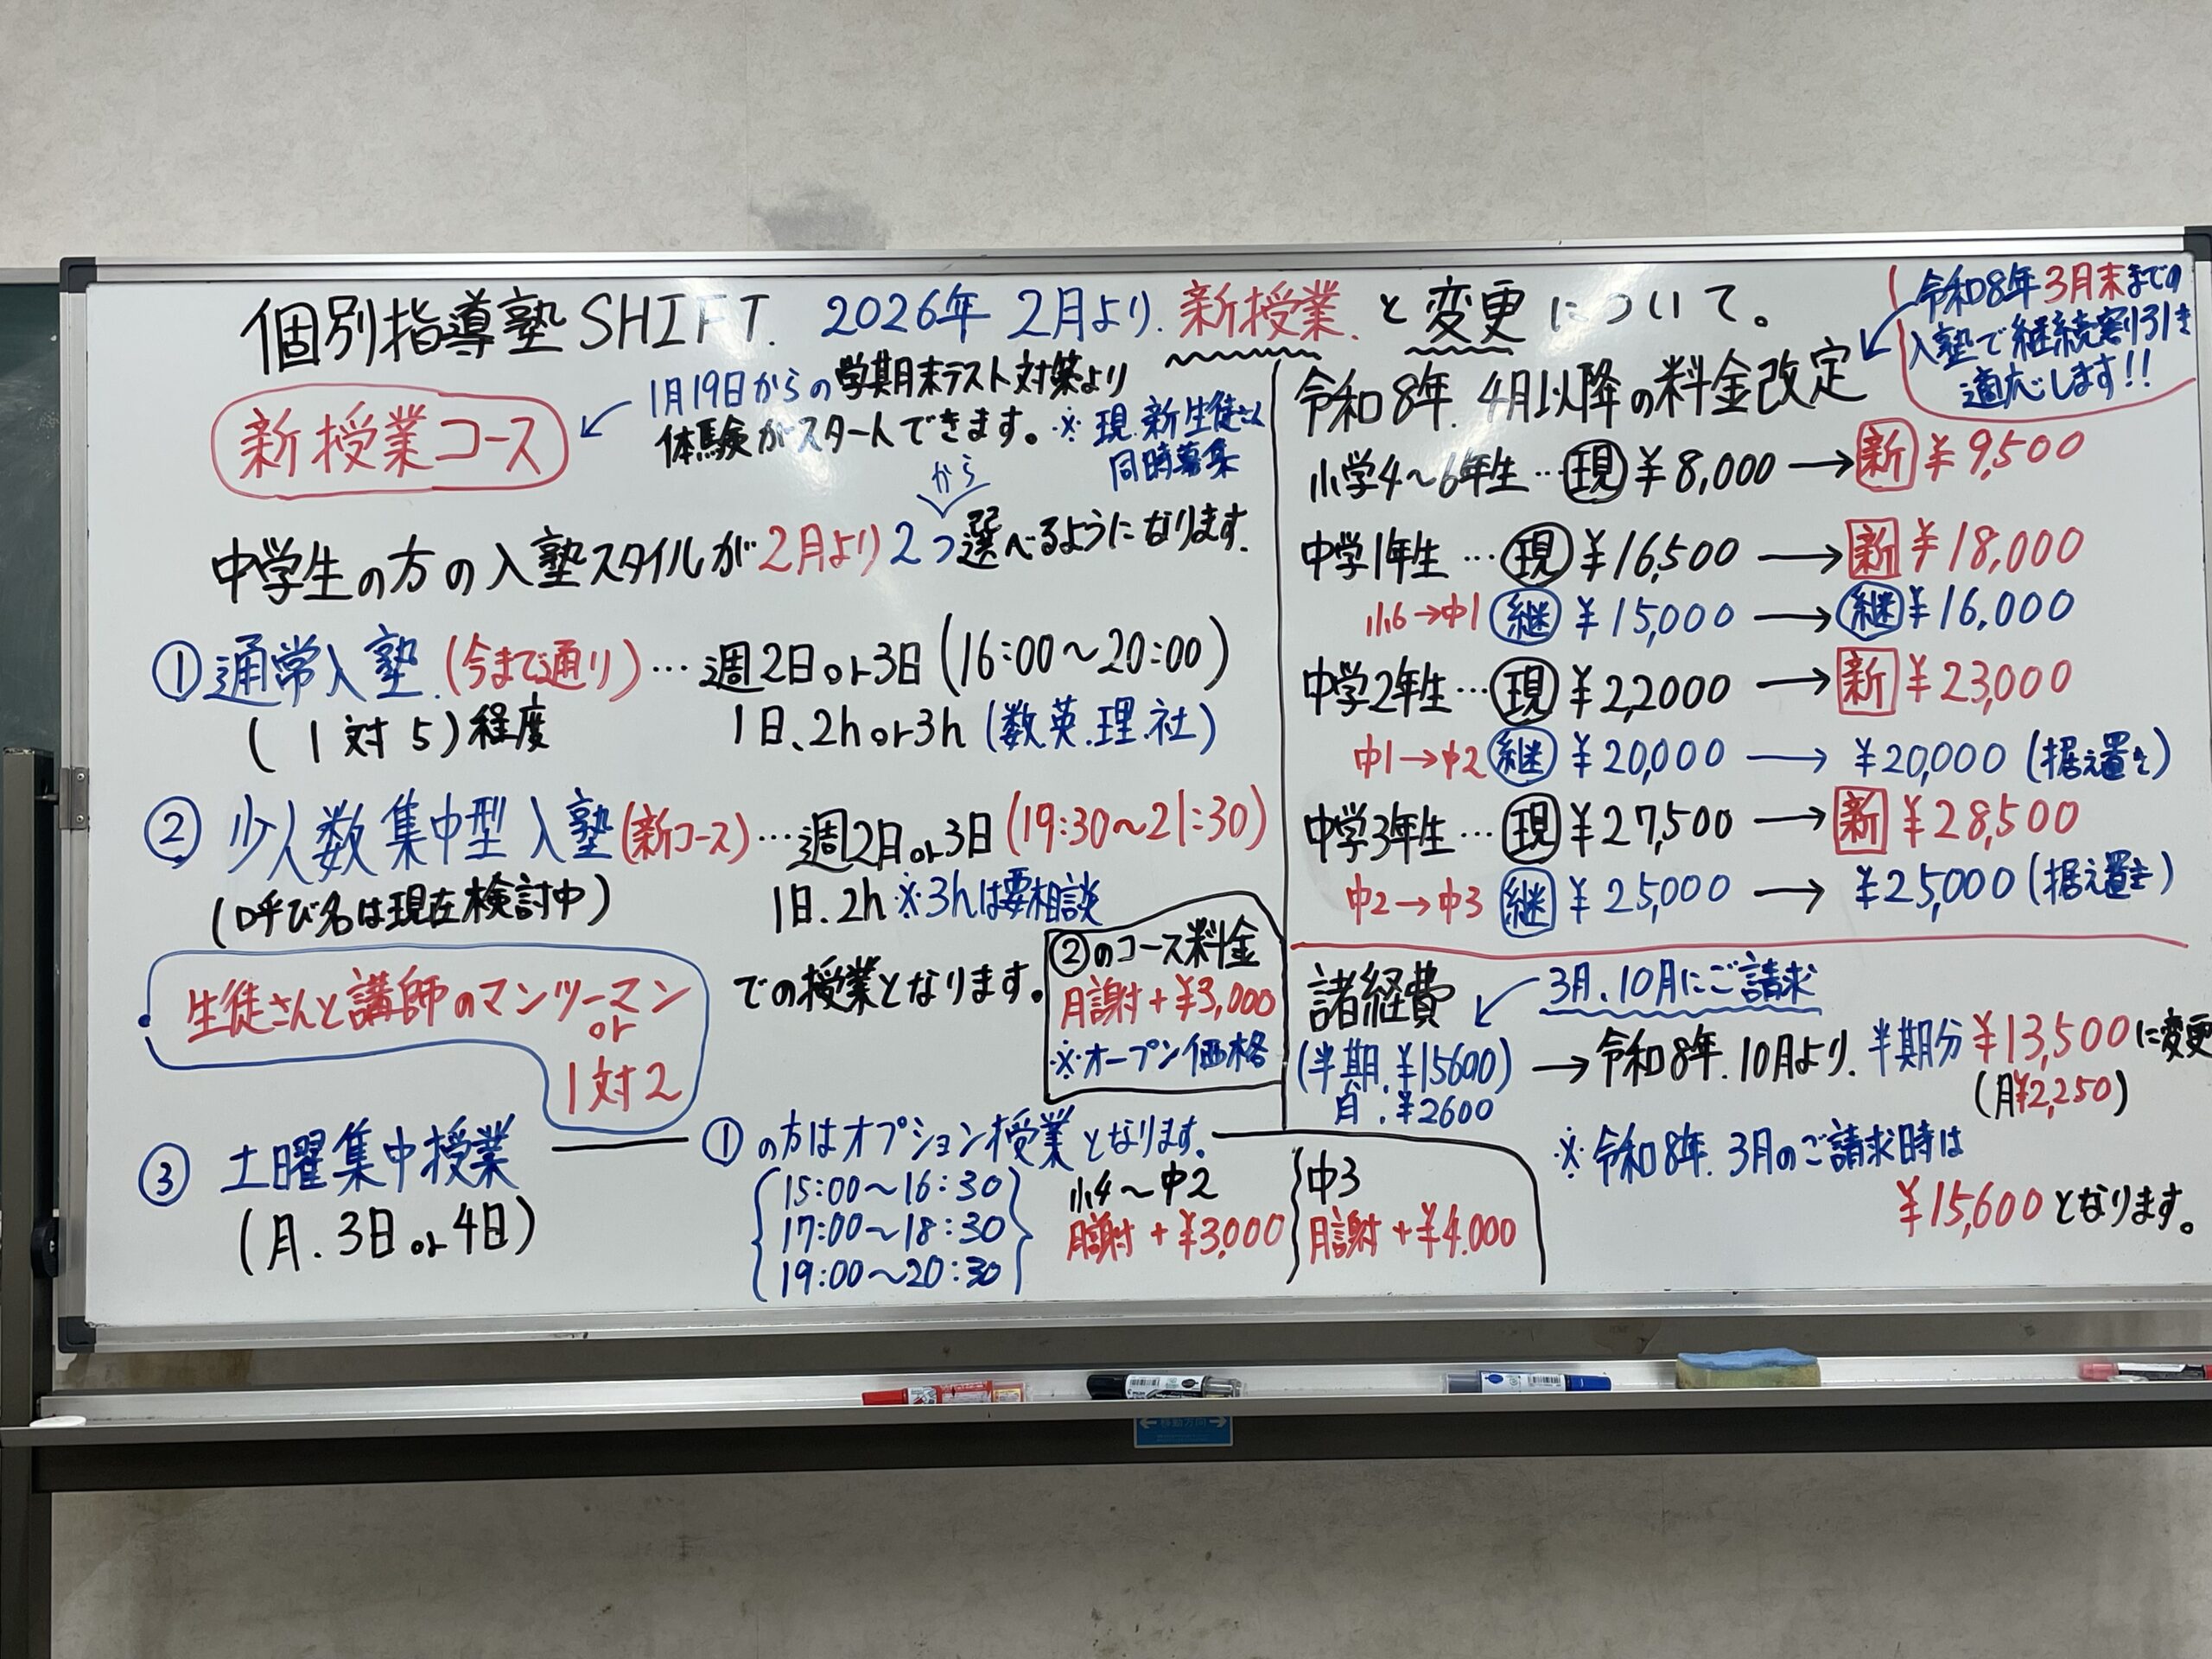 個別指導塾SHIFT. 2026年 2月より. 新授業. と変更について。
新授業コース
1月19日からの学期末テスト対策より
体験がスタートできます。※現.新生徒さん
同時募集
から
中学生の方の入塾スタイルが2月より2つ選べるようになります.
①通常入塾.(今まで通り)…週2日or3日(16:00〜20:00)
(1対5)程度
1日、2hor3h(数英.理.社)
②少人数集中型入塾(新コース)…週2日or3日(19:30〜21:30)
(呼び名は現在検討中)
1日.2h※3hは要相談
生徒さんと講師のマンツーマン
or
1対2
での授業となります。
②のコース料金
月謝+¥3,000
※オープン価格
③土曜集中授業
(月.3日or4日)
①の方はオプション授業となります。
15:00〜16:30
17:00〜18:30
19:00〜20:30
小4〜中2
月謝+¥3,000
中3
月謝+¥4.000
令和8年3月末までの
入塾で継続割引き
適応します!!
令和8年.4月以降の料金改定
小学4〜6年生…現¥8,000→新¥9,500
中学1年生…現¥16,500→新¥18,000
小6→中1継¥15,000→継¥16,000
中学2年生…現¥22,000→新¥23,000
中1→中2継¥20,000→¥20,000(据え置き)
中学3年生…現¥27,500→新¥28,500
中2→中3継¥25,000→¥25,000(据え置き)
諸経費
3月、10月にご請求
(半期.¥15600)→令和8年.10月より.半期分¥13,500に変更
月.¥2600
(月¥2,250)
※令和8年.3月のご請求時は
¥15,600となります。
移動方向